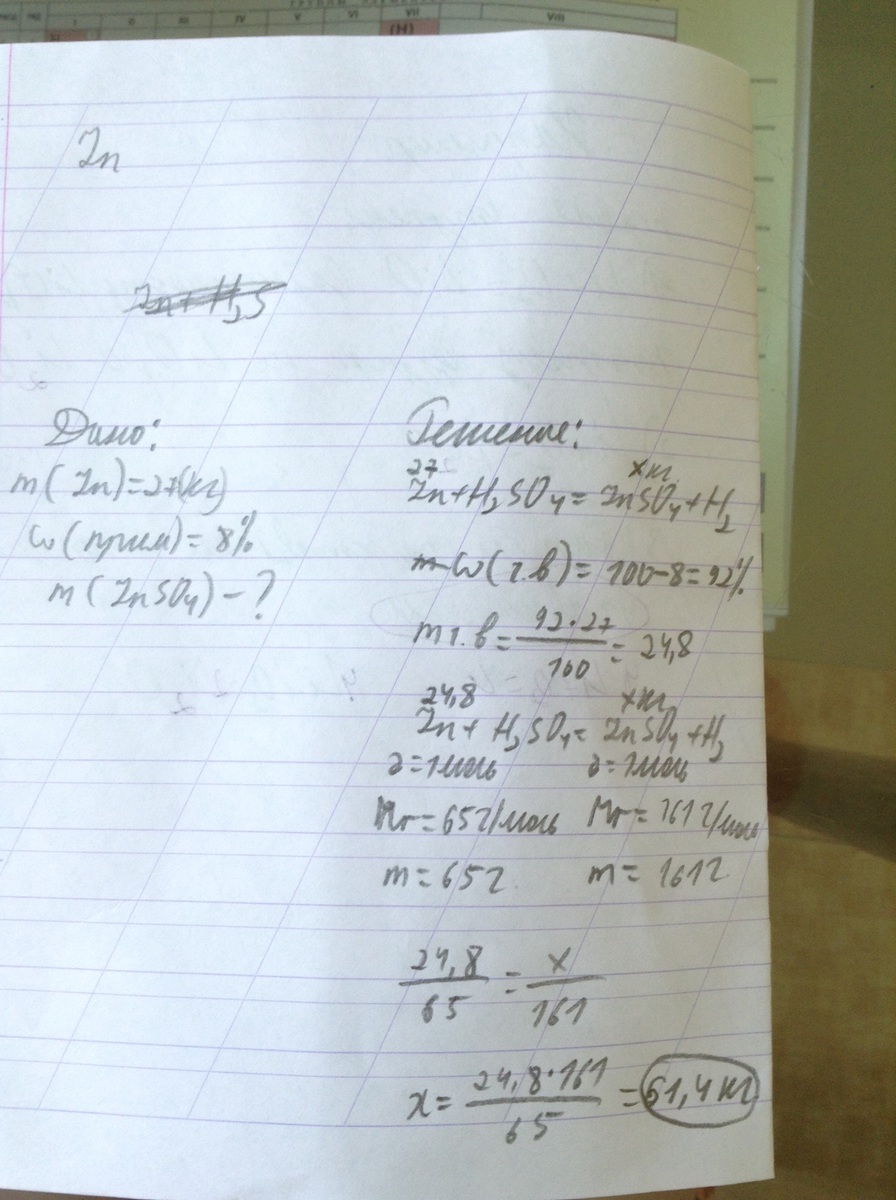 I II III IV V VI VII VIII
(H)
Zn
Zn + H₂S
Дано:
m(Zn)=27(кг)
ω(прим)=8%
m(ZnSO₄)-?
Решение:
27 x кг
Zn+H₂SO₄=ZnSO₄+H₂
ω(г.в)=100-8=92%
m г.в=92·27/100=24,8
24,8 x кг
Zn+H₂SO₄=ZnSO₄+H₂
∂=1моль ∂=1моль
Mr=65г/моль Mr=161г/моль
m=65г m=161г
24,8/65=x/161
x=24,8·161/65=61,4 кг